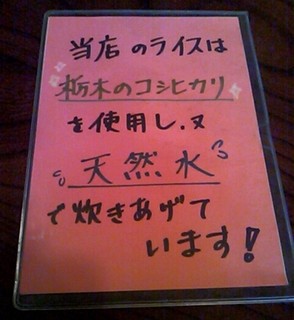 当店のライスは
栃木のコシヒカリ
を使用し、又
天然水
で炊きあげて
います!